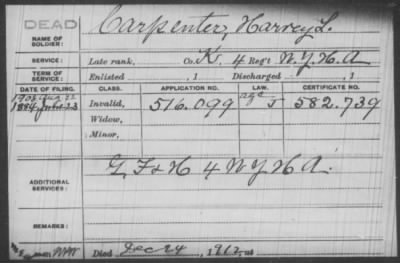 DEAD
Carpenter, Harvey L.
NAME OF SOLDIER:
SERVICE: Late rank, Co. K, 4 Reg't N.Y.H.A
TERM OF SERVICE: Enlisted , 1 Discharged , 1
DATE OF FILING. CLASS. APPLICATION NO. LAW. CERTIFICATE NO.
1884 Invalid, 516.099 age J 582.739
Widow,
Minor,
ADDITIONAL SERVICES: G, F & H 4 N Y H A.
REMARKS:
Died Dec 24, 1912, at